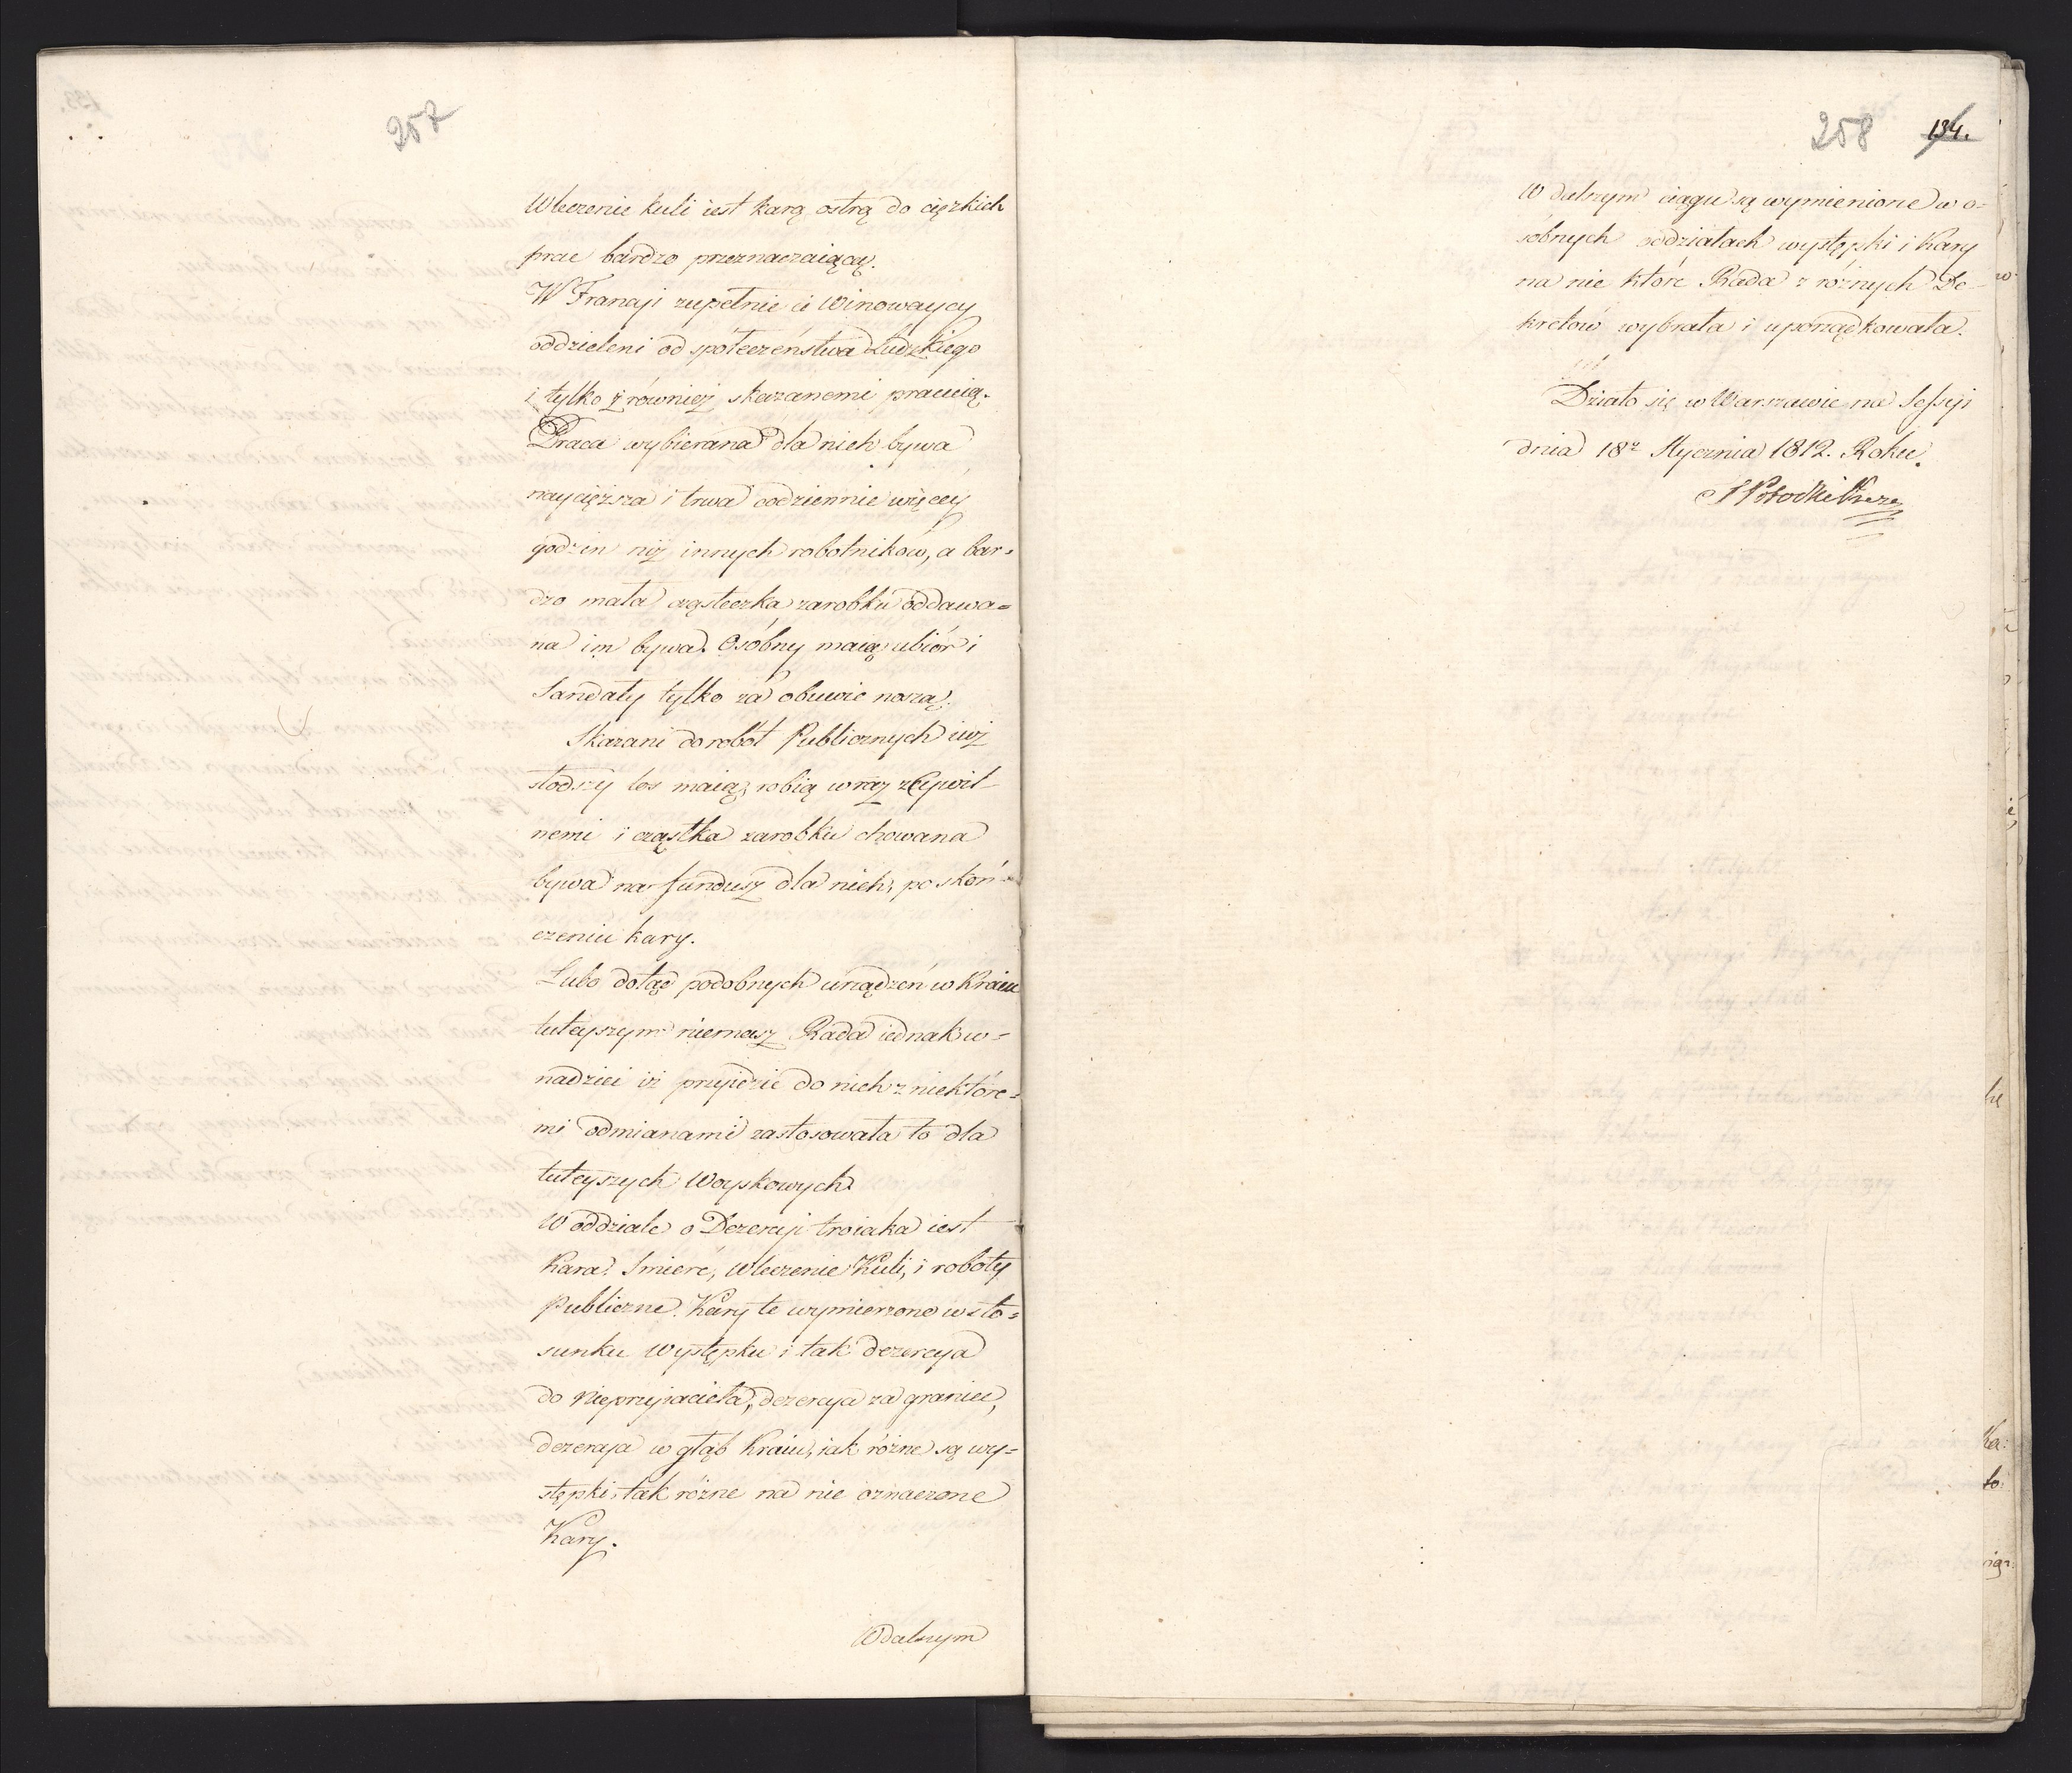 257
Wleczenie kuli iest karą ostrą do cięzkich
prac bardzo przeznaczaiącą.
W Francji zupełnie ci Winowaycy
oddzieleni od społeczeństwa Ludzkiego
i tylko z równiez skazanemi pracuią.
Praca wybierana dla nich bywa
naycięzsza i trwa codziennie więcey
godzin niz innych robotników, a bar=
dzo mała cząsteczka zarobku oddawa=
na im bywa. Osóbny maią ubiór i
Sandały tylko za obuwie noszą.
Skazani do robót Publicznych iuz
słodszy los maią; robią wraz z Cywil
nemi i cząstka zarobku chowana
bywa na fundusz dla nich, po skoń=
czeniu kary.
Lubo dotąd podobnych urządzeń w Kraiu
tuteyszym niemasz Rada iednak w=
nadziei iz przyidzie do nich z niektóre=
mi odmianami zastosowała to dla
tuteyszych Woyskowych
W oddziale o Dezercji troiaka iest
Kara. Smierć, Wleczenie Kuli, i roboty
Publiczne. Kary te wymierzone w sto=
sunku Występku i tak dezercya
do Nieprzyiaciela, dezercya za granicę,
dezercya w głąb Kraiu, iak różne są wy=
stępki, tak różne na nie oznaczone
Kary.
W dalszym
258 134.
W dalszym ciągu są wymienione w o=
sóbnych oddziałach występki i Kary
na nie które Rada z róznych De-
kretów wybrała i uporządkowała.
Działo się w Warszawie na Sessyi
dnia 18º Stycznia 1812. Roku.